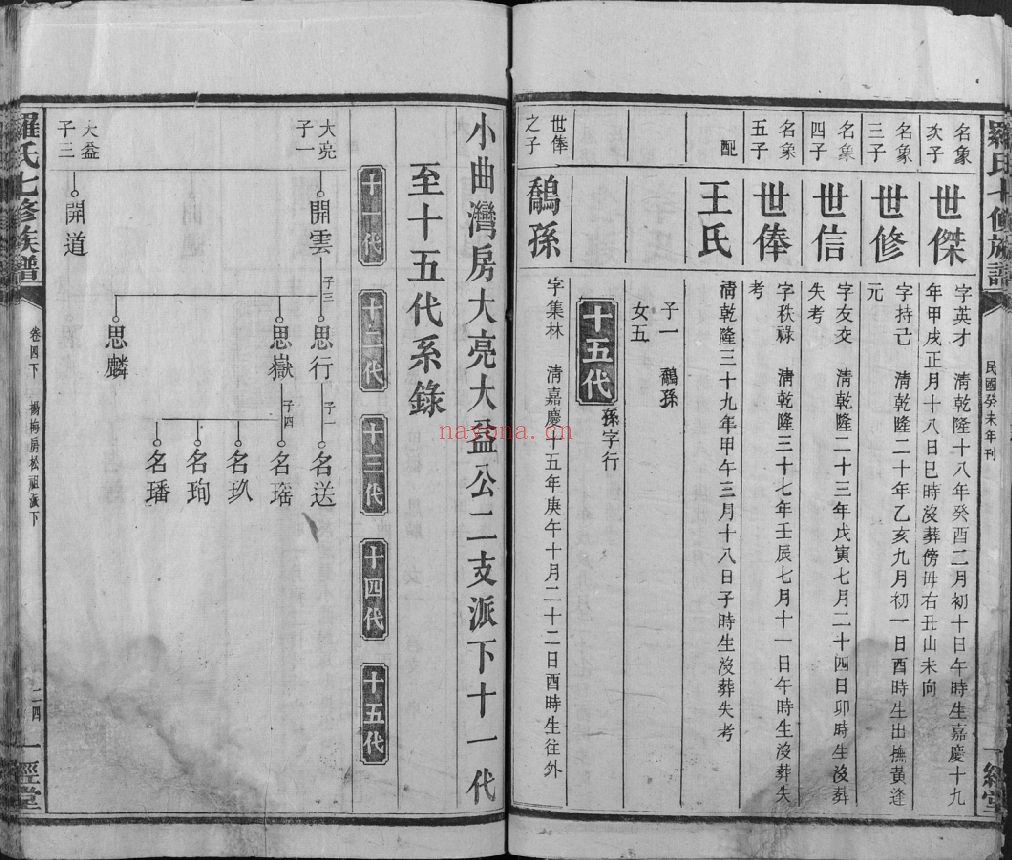 羅氏七修族譜
民國癸未年刊
一經堂
名象次子
世傑
字英才 清乾隆十八年癸酉二月初十日午時生嘉慶十九
年甲戌正月十八日巳時沒葬傍毋右丑山未向
名象三子
世修
字持己 清乾隆二十年乙亥九月初一日酉時生出撫黃逢
元
名象四子
世信
字友交 清乾隆二十三年戊寅七月二十四日卯時生沒葬
失考
名象五子
世俸
字秩祿 清乾隆三十七年壬辰七月十一日午時生沒葬失
考
配
王氏
清乾隆三十九年甲午三月十八日子時生沒葬失考
子一 鷸孫
女五
十五代
孫字行
世俸之子
鷸孫
字集林 清嘉慶十五年庚午十月二十二日酉時生往外
小曲灣房大亮大益公二支派下十一代
至十五代系錄
十一代
十二代
十三代
十四代
十五代
大亮子一
開雲
子三
思行
子一
名送
思嶽
子四
名瑤
名玖
名珣
名璠
思麟
大益子三
開道
羅氏七修族譜
卷四下
楊梅房松祖派下
二四
一經堂
nayona.cn